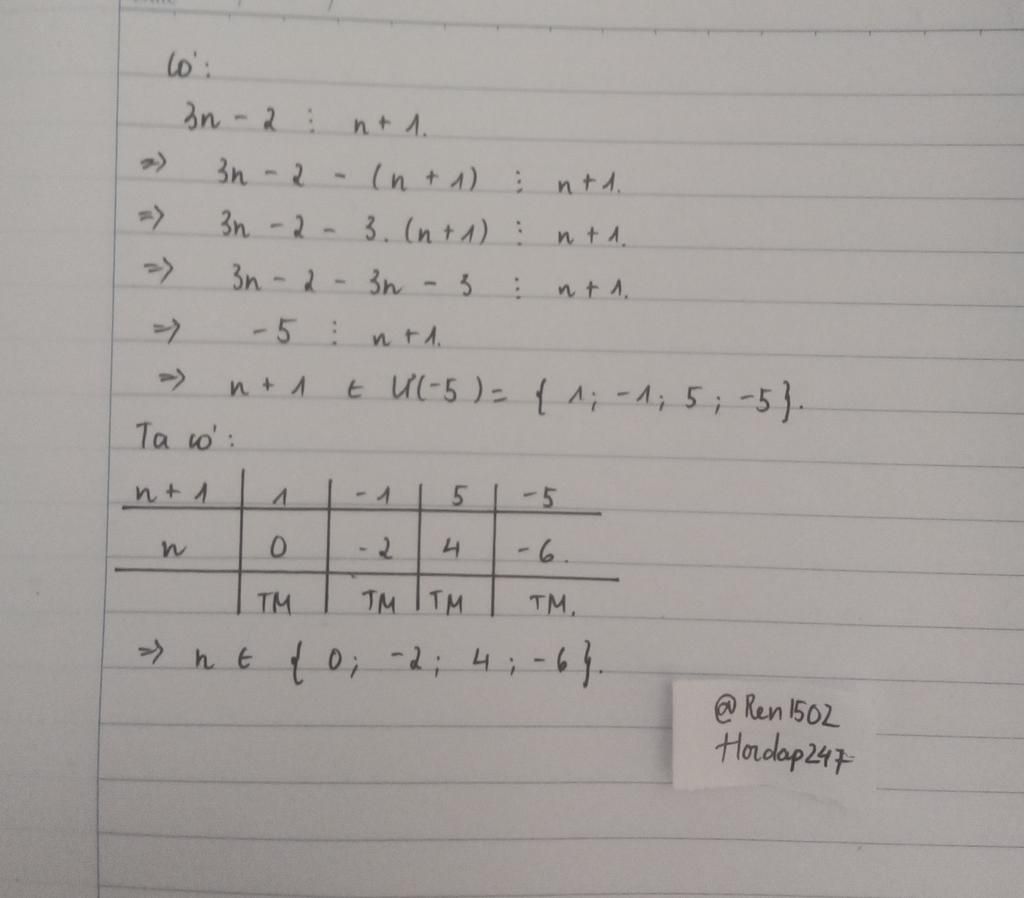 Có:
3n - 2 ⋮ n + 1.
=> 3n - 2 - (n + 1) ⋮ n + 1.
=> 3n - 2 - 3. (n + 1) ⋮ n + 1.
=> 3n - 2 - 3n - 3 ⋮ n + 1.
=> -5 ⋮ n + 1.
=> n + 1 ∈ Ư(-5) = { 1; -1; 5; -5}.
Ta có:
n + 1 | 1 | -1 | 5 | -5
n | 0 | -2 | 4 | -6.
TM | TM | TM | TM.
=> n ∈ { 0; -2; 4; -6}.
@Ren1502
Hoidap247